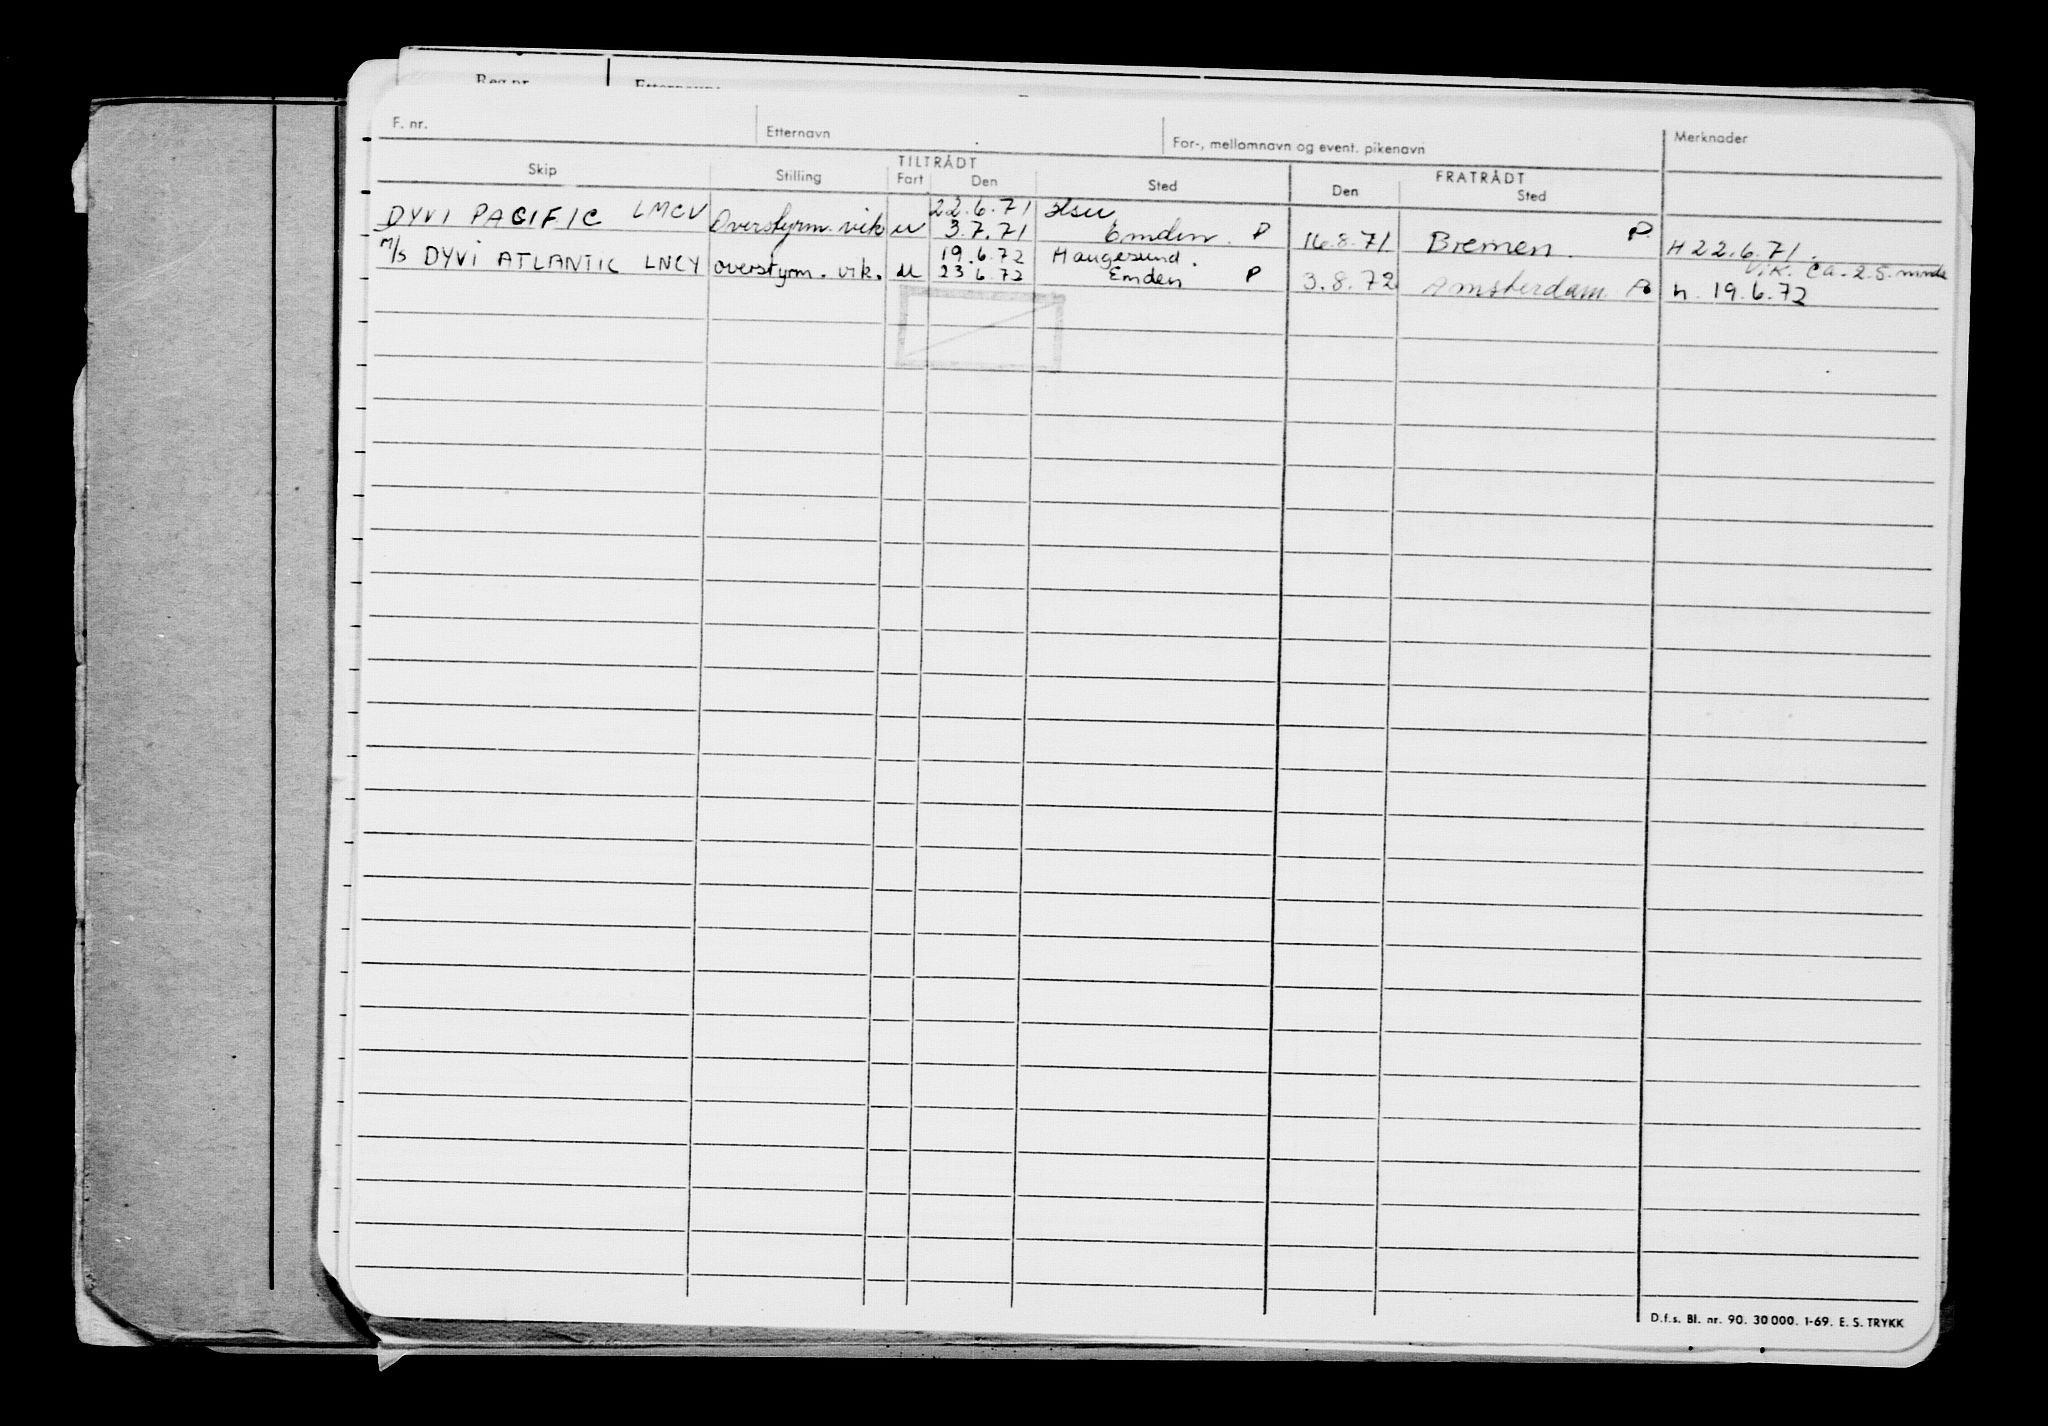 Reg.nr. Etternavn:
F. nr. Etternavn For-, mellomnavn og event. pikenavn Merknader
TILTRÅDT FRATRÅDT
Skip Stilling Fart Den Sted Den Sted
22.6.71
DYVI PACIFIC LMCV Overstyrm. vik u 3.7.71 Emden. P 16.8.71 Bremen. P H 22.6.71.
19.6.72 Haugesund. Vik. ca. 2.5. mnde
M/S DYVI ATLANTIC LNCY overstyrm. vik. u 23 6.72 Emden P 3.8.72 Amsterdam P h. 19.6.72
D.f.s. Bl. nr. 90. 30 000. 1-69. E. S. TRYKK